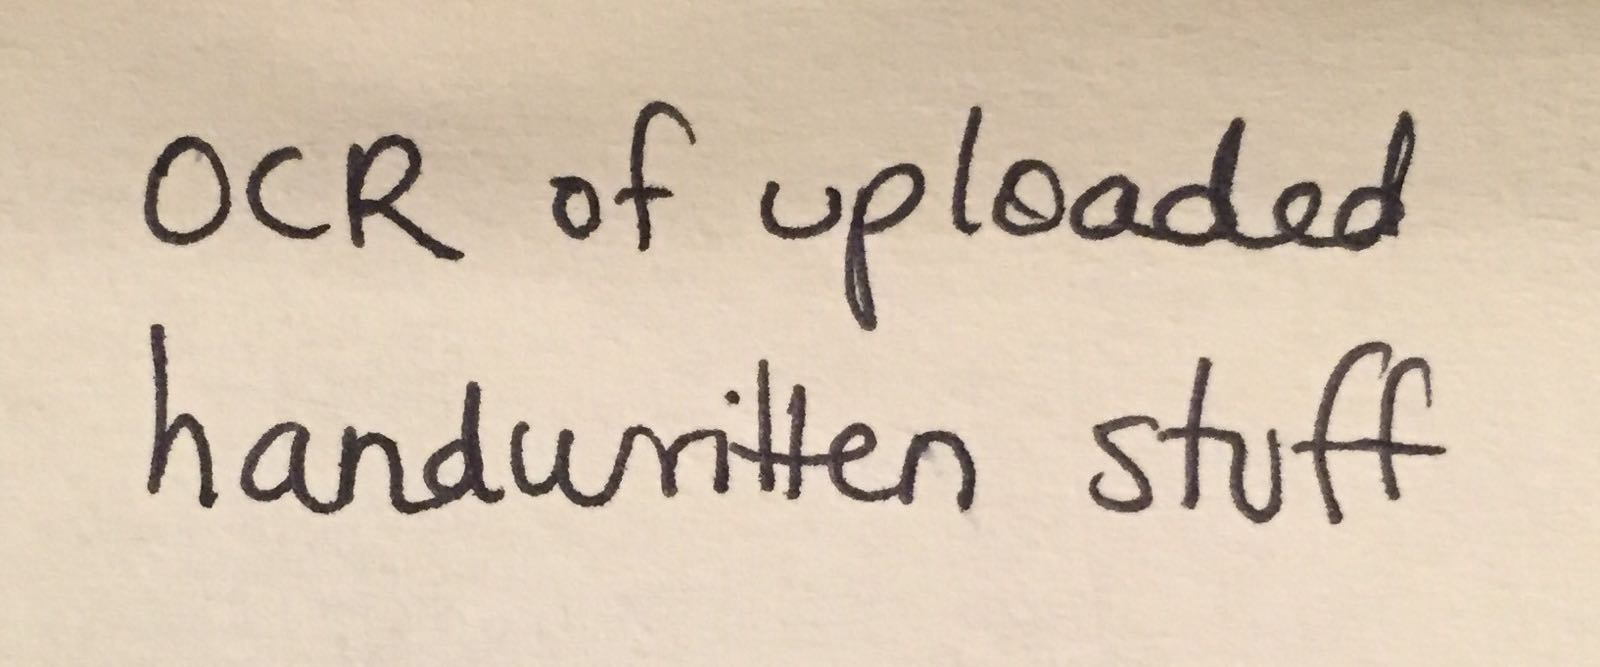 OCR of uploaded
handwritten stuff